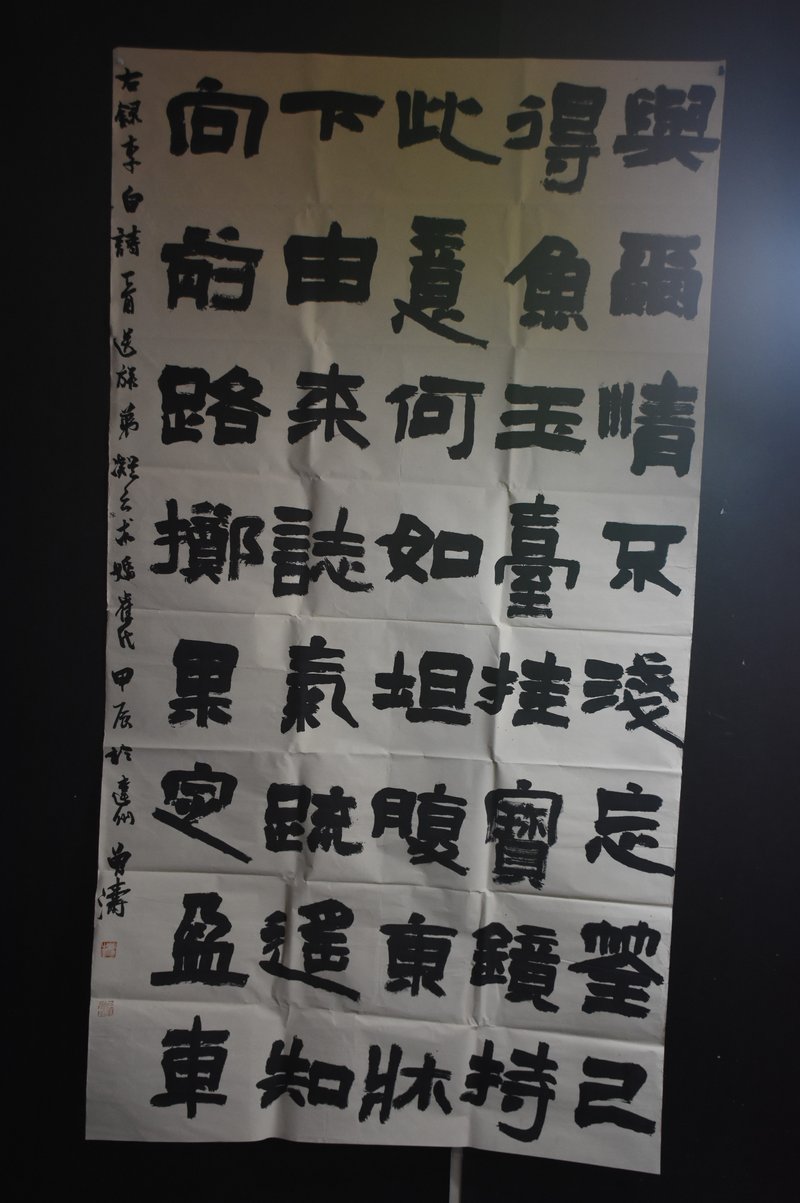 與爾情不淺忘筌已
得魚玉臺挂寶鏡持
此意何如坦腹東牀
下由来誌氣疏遥知
向前路擲果定盈車
右録李白詩一首送族弟凝之求婚崔氏甲辰於達州曾濤